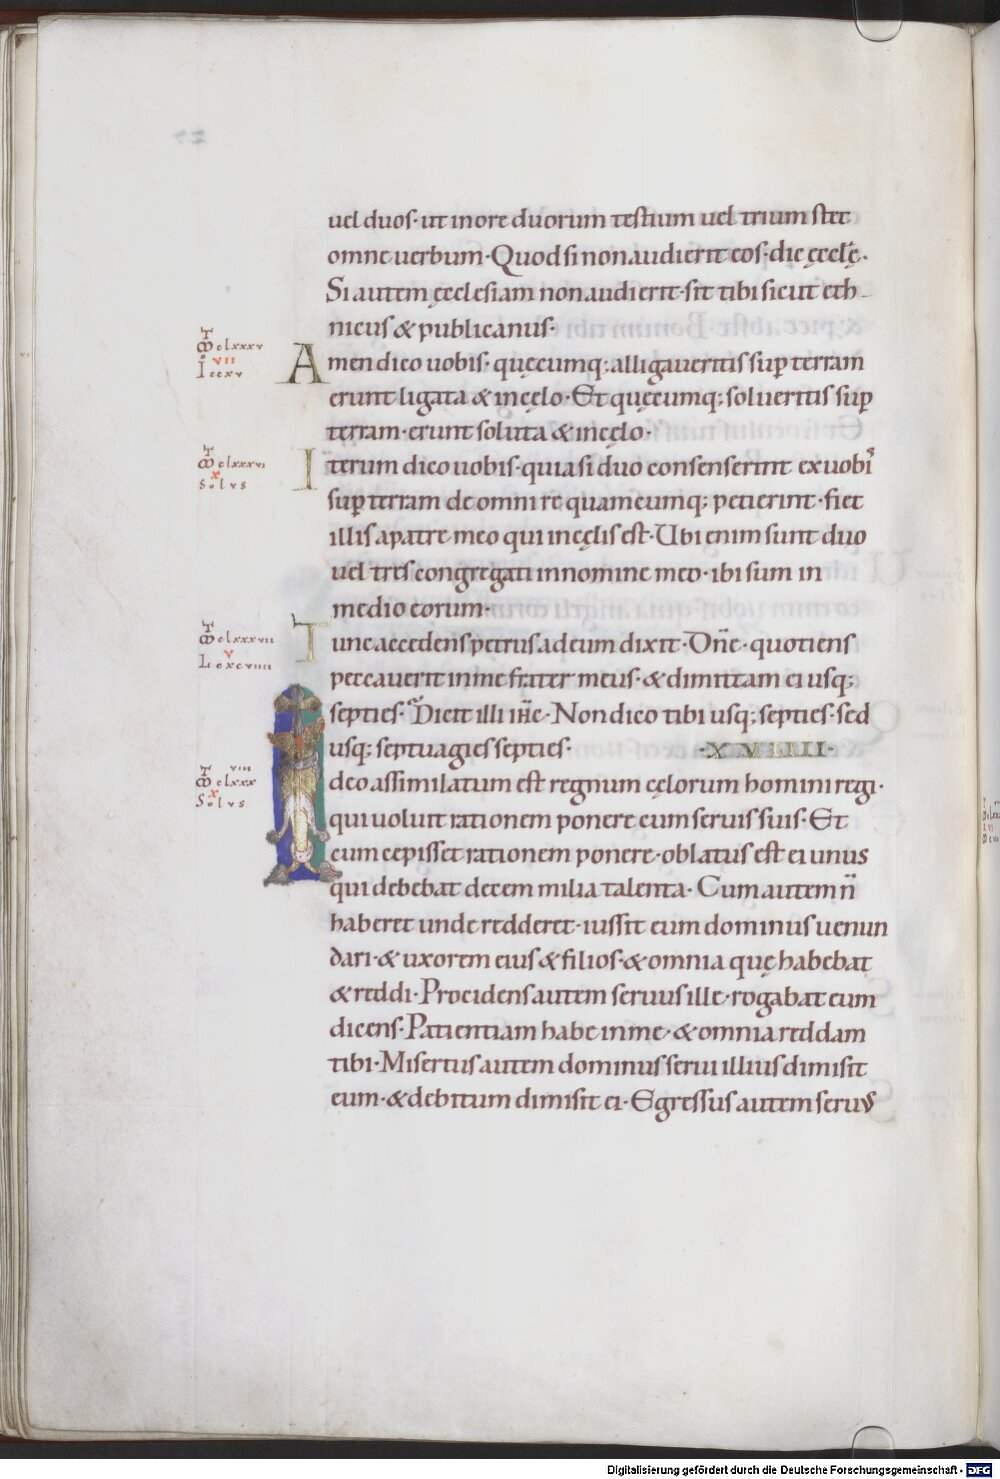 uel duos· ut inore duorum testium uel trium stet
omne uerbum· Quod si non audierit eos· dic ęccl̄ę·
Si autem ęcclesiam non audierit· sit tibi sicut eth
nicus & publicanus·
Amen dico uobis· quęcumq; alligaueritis sup̄ terram
erunt ligata & in cęlo· Et quęcumq; solueritis sup̄
terram· erunt soluta & in cęlo·
Iterum dico uobis· quia si duo consenserint ex uobis
sup̄ terram de omni re quamcumq; petierint· fiet
illis a patre meo qui in cęlis est· Ubi enim sunt duo
uel tres congregati in nomine meo· ibi sum in
medio eorum·
Tunc accedens petrus ad eum dixit· Dn̄e· quotiens
peccauerit in me frater meus· & dimittam ei usq;
septies· Dicit illi ih̄c· Non dico tibi usq; septies· sed
usq; septuagies septies· ·XVIIIII·
Ideo assimilatum est regnum cęlorum homini regi·
qui uoluit rationem ponere cum seruis suis· Et
cum cepisset rationem ponere· oblatus est ei unus
qui debebat decem milia talenta· Cum autem n̄
haberet unde redderet· iussit eum dominus uenun
dari· & uxorem eius & filios· & omnia quę habebat
& reddi· Procidens autem seruus ille· rogabat eum
dicens· Patientiam habe in me· & omnia reddam
tibi· Misertus autem dominus serui illius dimisit
eum· & debitum dimisit ei· Egressus autem seruus
clxxxv
vii
I ccxv
clxxxvi
x
Solvs
clxxxvii
v
L cxcviiii
viii
clxxx
x
Solvs
Digitalisierung gefördert durch die Deutsche Forschungsgemeinschaft - DFG